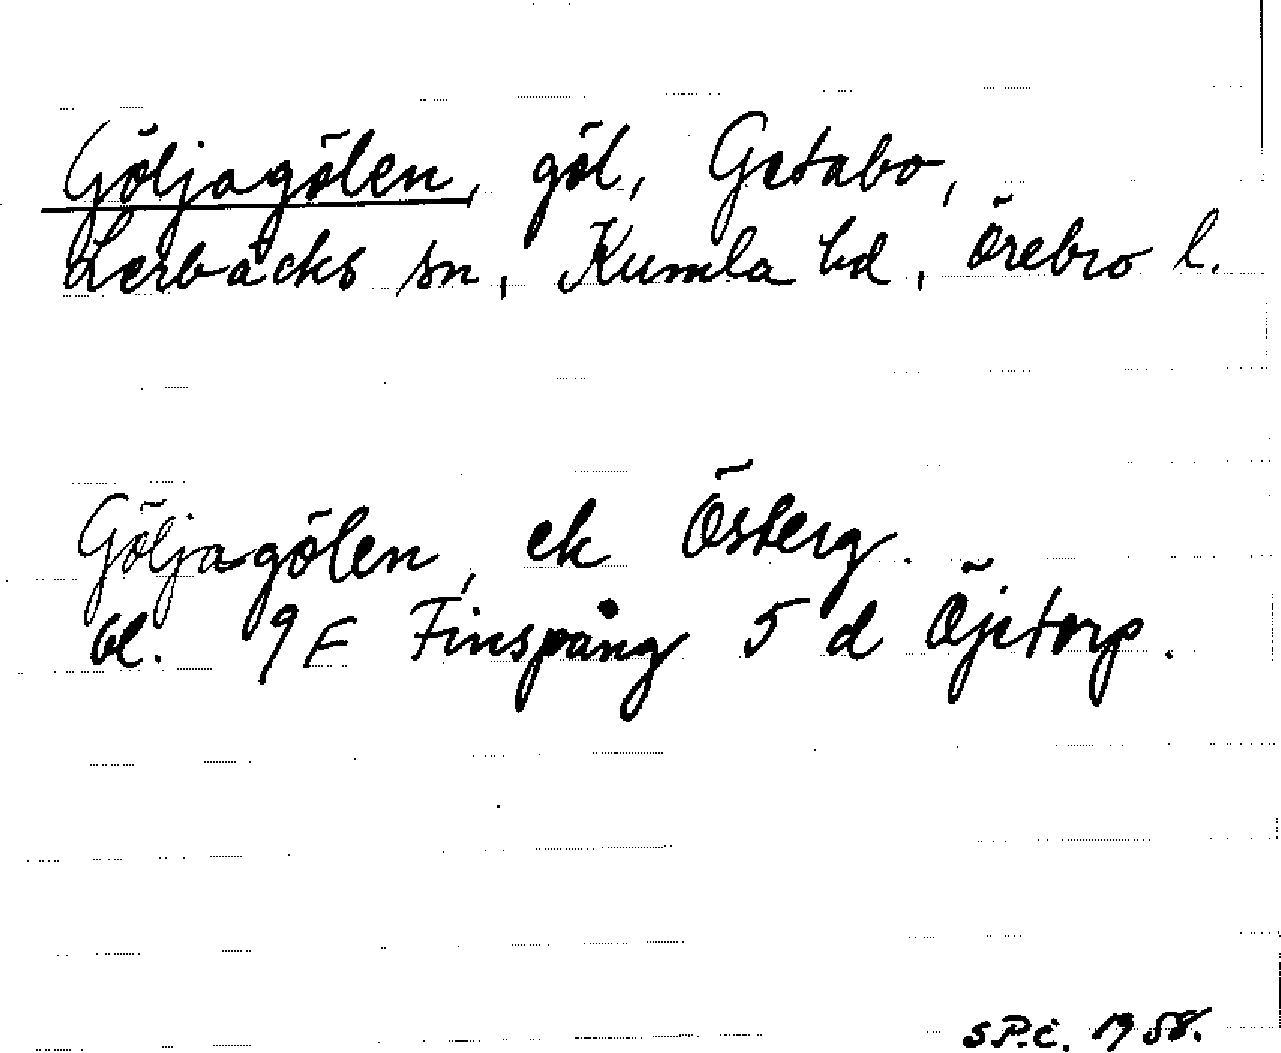 Göljagölen, göl, Getabo,
Lerbäcks sn, Kumla hd, Örebro l.
Göljagölen, ek Österg.
bl. 9 F Finspång 5 d Öjetorp.
SP.C. 1958.